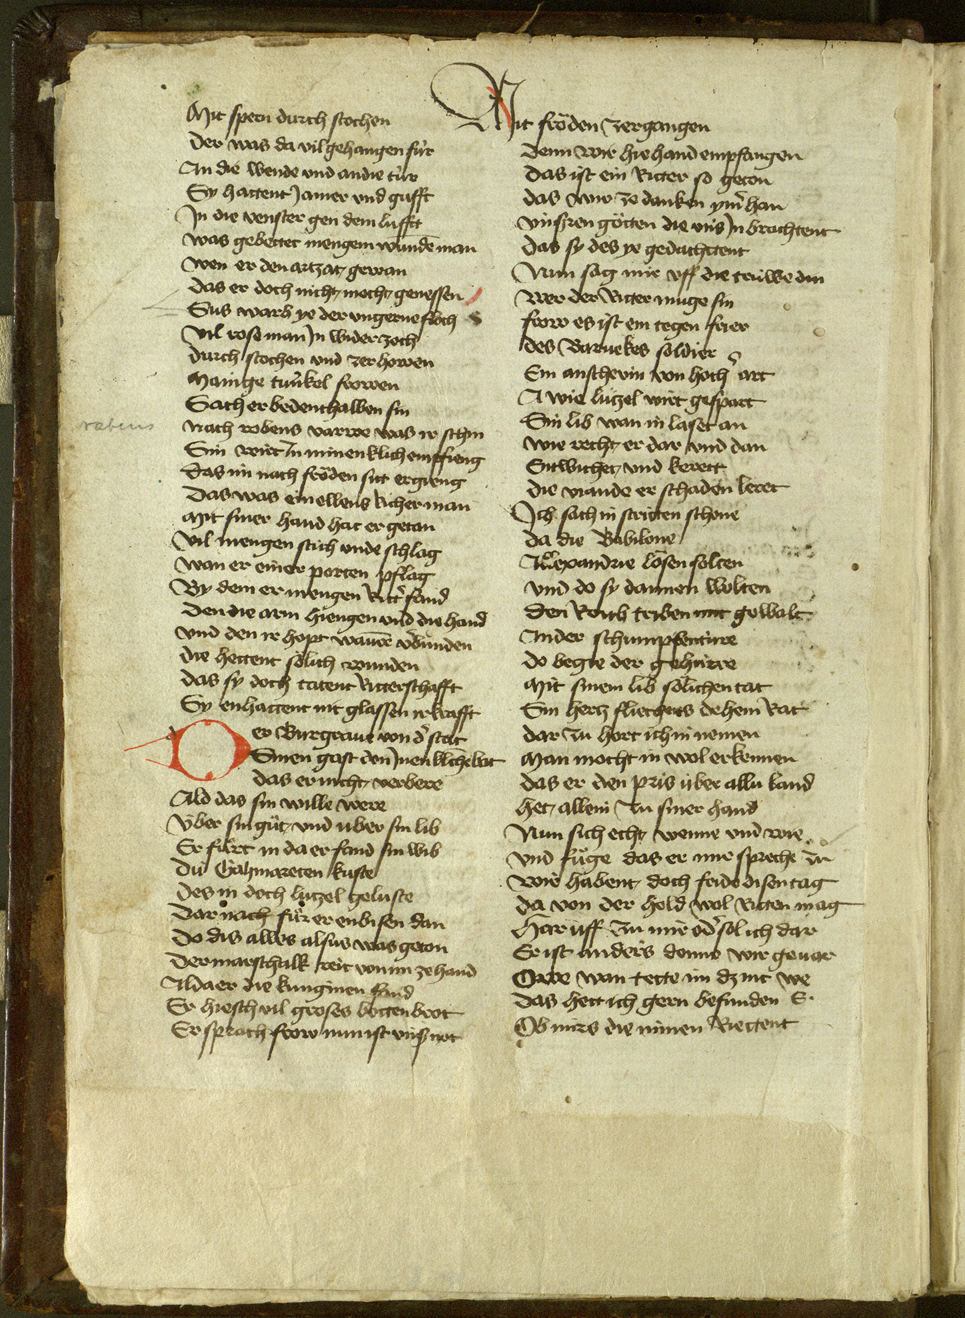 Mit spern durch stochen
Der was da vil gehangen für
An die wende vnd an die tür
Sy hattent Jamer vnd gufft
In die venster gen dem lufft
was gebettet mengem wunden man
wen er den artzat gewan
das er doch nicht mocht genessen
Sus warb ye der vngerne floch
Vil rose man In wider zoch
durch stochen vnd zer howen
Mainge tunkel frowen
Sach er bedenthalben sin
nach robens varwe was ir schin
rabens
Sin wirt In minenklich empfieng
das im nach fröden sit ergieng
Das was ein ellens richer man
Mit siner hand hat er getan
Vil mengen stich vnde schlag
wan er einer porten pflag
By dem er mengen Ritt' fand
Den die arm hiengen vnd die hand
vnd den ir hopt warē v'bunden
die hettent sölich wunden
das sy doch tatent Ritterschafft
Sy enhattent nit glassen ir krafft
Der Burgraue von d' stat
Sinen gast den Inenklichē bat
das er nicht verbere
Ald das sin wille were
Vber sin gůt vnd über sin lib
Er fůrt in da er fand sin wib
Du Gahmureten kuste
des in doch lützel geluste
Dar nach fůr er enbisen dan
Do dis alles alsus was geton
Der marschalk reit von im ze hand
Alda er die kunginen fand
Er hiesch vil groses botten brot
Er sprach frow nun ist vnß not
Mit fröden zergangen
Denn wir hie hand empfangen
Das ist ein Ritter so geton
das wir ze danken ym' han
vnßren götten die vns In brachtent
das sy des ye gedachttent
Nun sag mir vff die trüwe din
wer der Ritter müge sin
frow es ist ein tegen frier
des Baruekes soldier
Ein anschevin von hoch' art
A wie lützel wirt gespart
Sin lib wan in laset an
wie recht er dar vnd dan
Entwichet vnd kerett
die viande er schaden leret
Ich sach in striten schone
da die Babilone
Allexandrie lösen solten
vnd do sy dannen wolten
den Roub triben mit gewalt
An der schumpfenture
do begie der gehürre
Mit sinem lib sölichen tat
Sin hertz fliechens dehein Rat
dar zu hort ich in nemen
Man mocht in wol erkennen
das er den pris über allu land
het allein zu siner hand
Nun sich echt wenne vnd wie
vnd füge das er mir spreche zů
wir habent doch fride disen tag
da von der held wol Ritten mag
Har uff zu mir od' sol ich dar
Er ist anders denne wir geuar
Owe wan tette im dz nit we
Das hett ich gern befunden E
Ob mirs die minen Riettent